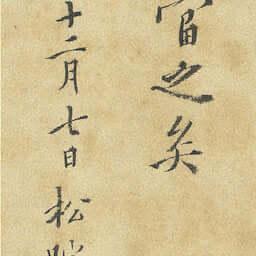 富之矣
十二月七日松